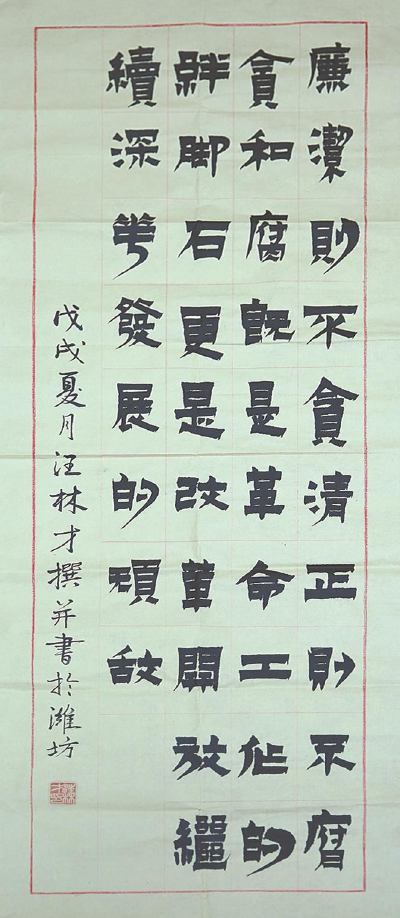 廉潔則不貪清正則不
貪和腐既是革命工作的
絆脚石更是改革開放繼
續深發展的頑敌
戊戌夏月汪林才撰并書於濰坊